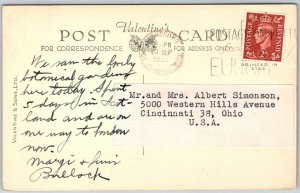 Valentine's
POST CARD
FOR CORRESPONDENCE
ADDRESS ONLY
POSTAGE REVENUE
PM
SEP
PRINTED IN
VALENTINE & SONS, LTD.
We saw the lovely
botanical gardens
here today. Spent
5 days in Scot-
land and are on
our way to London
now.
Margi & Jim
Bullock
Mr. and Mrs. Albert Simonson,
5000 Western Hills Avenue
Cincinnati 38, Ohio
U.S.A.